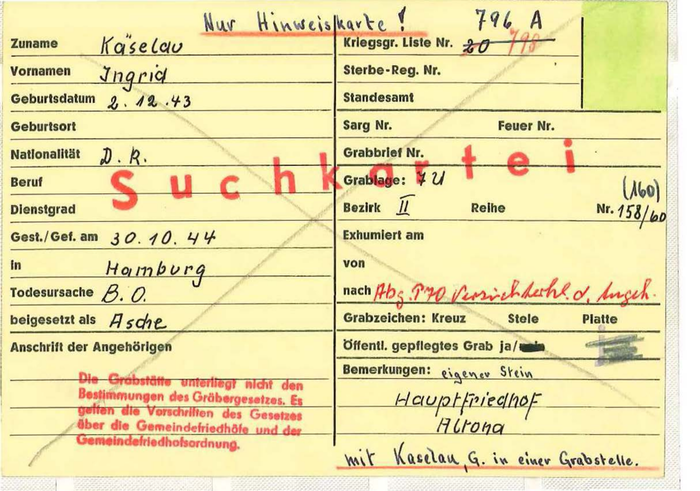 Nur Hinweiskarte!
796 A
Zuname Käselau
Kriegsgr. Liste Nr. 20 798
Vornamen Ingrid
Sterbe-Reg. Nr.
Geburtsdatum 2.12.43
Standesamt
Geburtsort
Sarg Nr. Feuer Nr.
Nationalität D.R.
Grabbrief Nr.
Suchkartei
Beruf
Grablage: 7U
Dienstgrad
Bezirk II Reihe Nr. 158/60
(160)
Gest./Gef. am 30.10.44
Exhumiert am
In Hamburg
von
Todesursache B.O.
nach Abg. d. Angeh.
beigesetzt als Asche
Grabzeichen: Kreuz Stele Platte
Anschrift der Angehörigen
Öffentl. gepflegtes Grab ja/
Bemerkungen: eigener Stein
Hauptfriedhof
Altona
Die Grabstätte unterliegt nicht den
Bestimmungen des Gräbergesetzes. Es
gelten die Vorschriften des Gesetzes
über die Gemeindefriedhöfe und der
Gemeindefriedhofsordnung.
mit Kaselau, G. in einer Grabstelle.